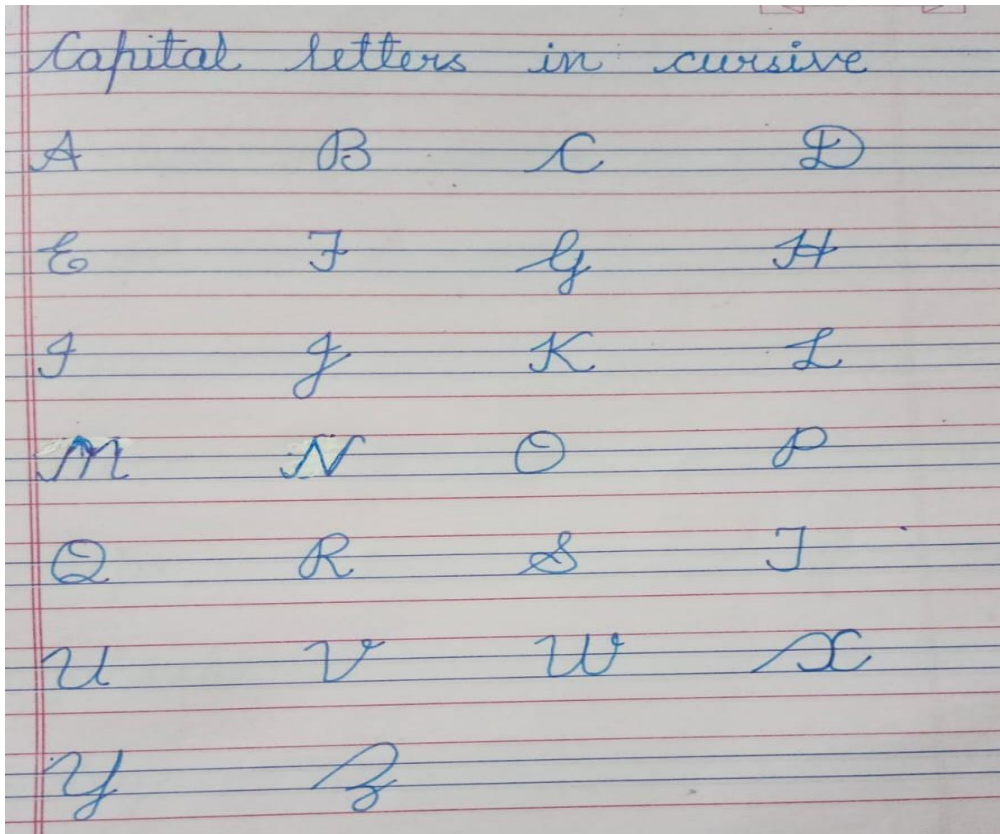 Capital letters in cursive
A B C D
E F G H
I J K L
M N O P
Q R S T
U V W X
Y Z